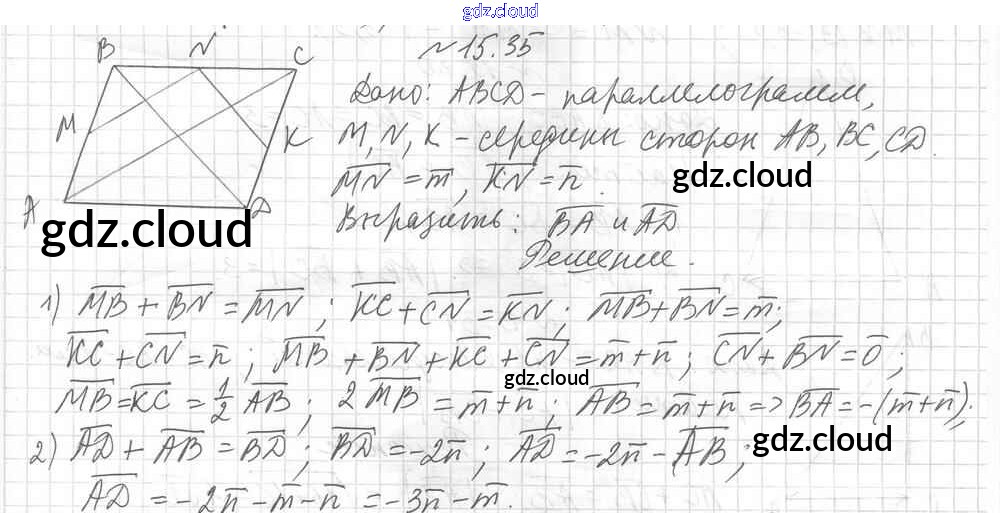 gdz.cloud
№15.35
B N C
Дано: ABCD - параллелограмм,
M K
M, N, K - середины сторон AB, BC, CD.
\overline{MN} = \overline{m}, \overline{KN} = \overline{n}.
gdz.cloud
A D
Выразить: \overline{BA} и \overline{AD}
gdz.cloud
Решение.
1) \overline{MB} + \overline{BN} = \overline{MN}; \overline{KC} + \overline{CN} = \overline{KN}; \overline{MB} + \overline{BN} = \overline{m};
\overline{KC} + \overline{CN} = \overline{n}; \overline{MB} + \overline{BN} + \overline{KC} + \overline{CN} = \overline{m} + \overline{n}; \overline{CN} + \overline{BN} = \overline{0};
gdz.cloud
\overline{MB} = \overline{KC} = \frac{1}{2} \overline{AB}; 2\overline{MB} = \overline{m} + \overline{n}; \overline{AB} = \overline{m} + \overline{n} => \overline{BA} = -(\overline{m} + \overline{n});
2) \overline{AD} + \overline{AB} = \overline{BD}; \overline{BD} = -2\overline{n}; \overline{AD} = -2\overline{n} - \overline{AB};
gdz.cloud
\overline{AD} = -2\overline{n} - \overline{m} - \overline{n} = -3\overline{n} - \overline{m}.